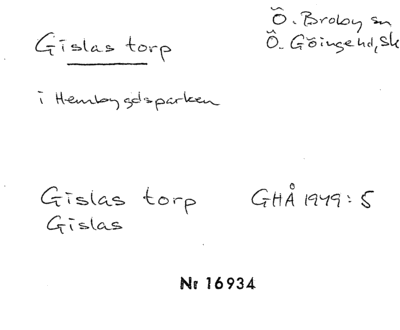 Ö. Broby sn
Gislas torp
Ö. Göinge hd, Sk
i Hembygdsparken
Gislas torp GHÅ 1949: 5
Gislas
Nr 16934